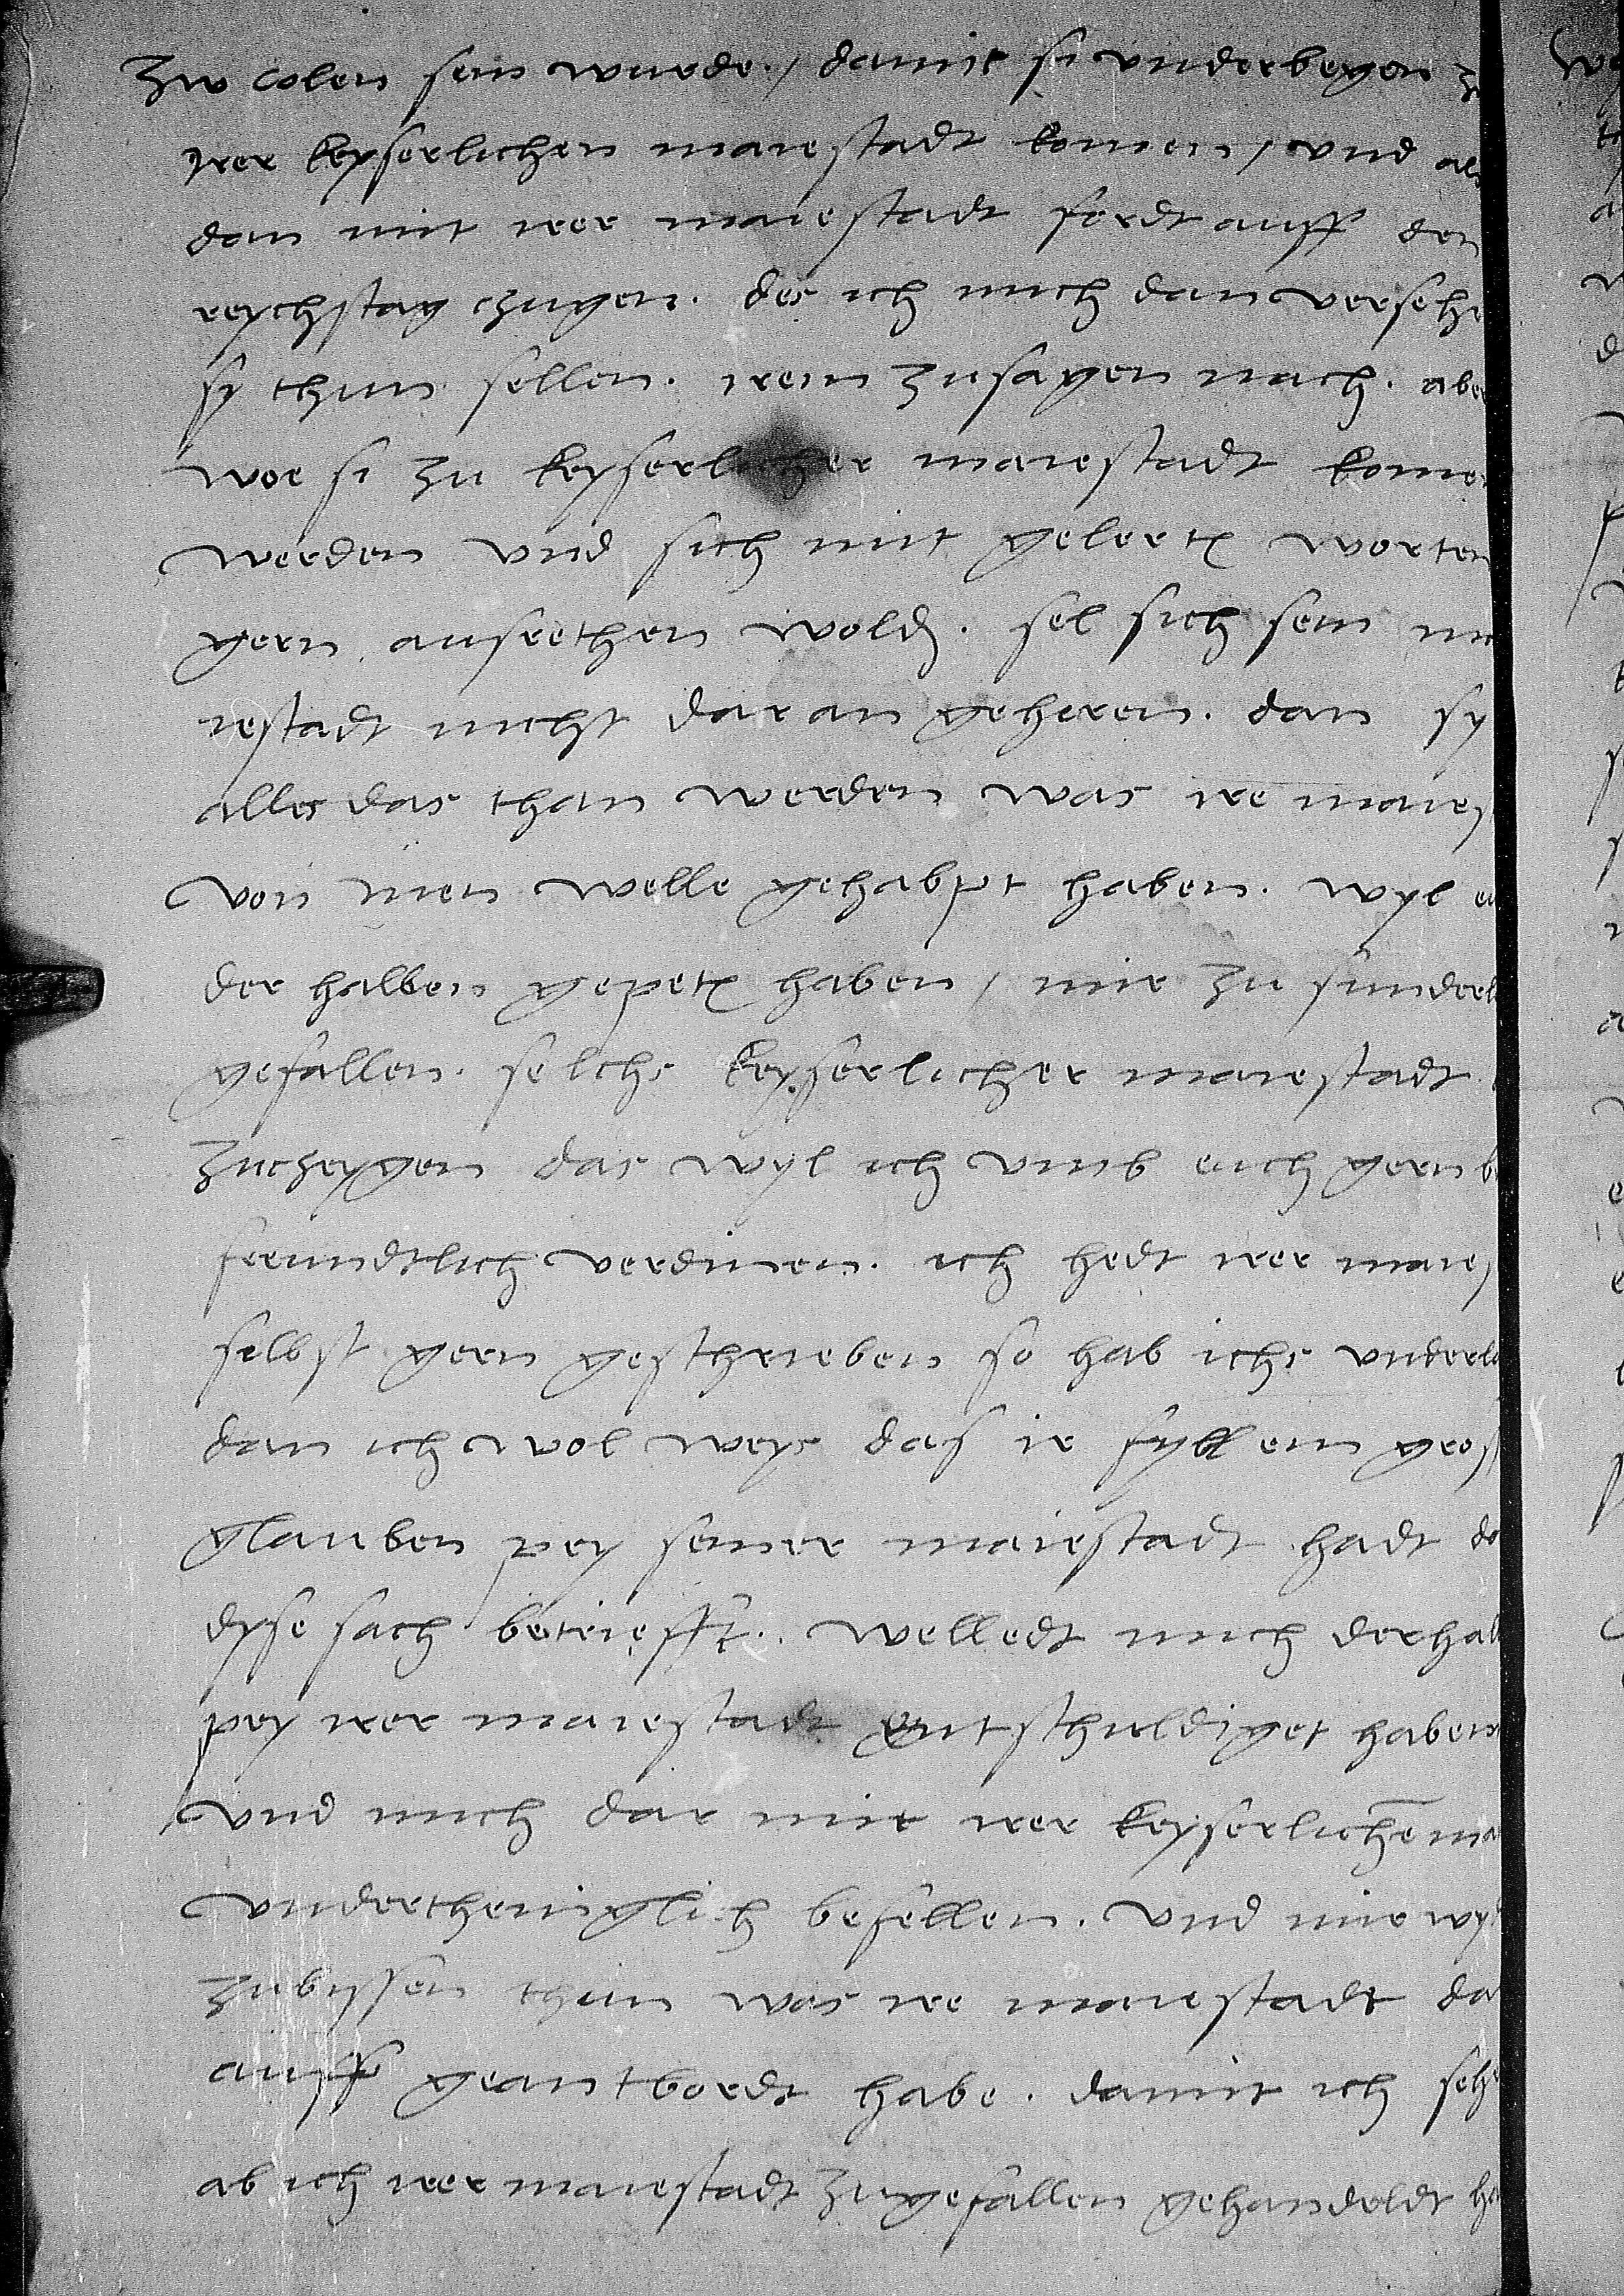 zw colen sein wurde / damit si underbegen z
irer keyserlichen maiestadt komen / und als
dan mit irer maiestadt fordt auff den
reychstag zugen. des ich mich dan verseh
sy thun sollen. irem zusagen nach. aber
woe si zu keyserlicher maiestadt komen
werden und sich mit gelertn worten
gern ausrethen wolden. sol sich sein ma
iestadt nicht daran geheren. dan sy
alles das than werden was ire maiest
von inen welle gehabpt haben. wyl eu
der halben gepetn haben / mir zu sunderl
gefallen. solchs keyserlicher maiestadt
zuczeygen das wyl ich umb euch gern
freundtlich verdinen. ich hedt irer maiest
selbst gern geschrieben so hab ichs underla
dan ich wol weys das ir fyll ein gross
glauben pey seiner maiestadt hadt do
dyse sach betriefft. welledt mich derhalb
pey irer maiestadt entschuldiget haben
und mich dar mit irer keyserlichē ma
underthenigklich befellen. und mir wyd
zubyssen thun was ire maiestadt da
auff geantbordt habe. damit ich sehe
ab ich irer maiestadt zugefallen gehandeldt ha